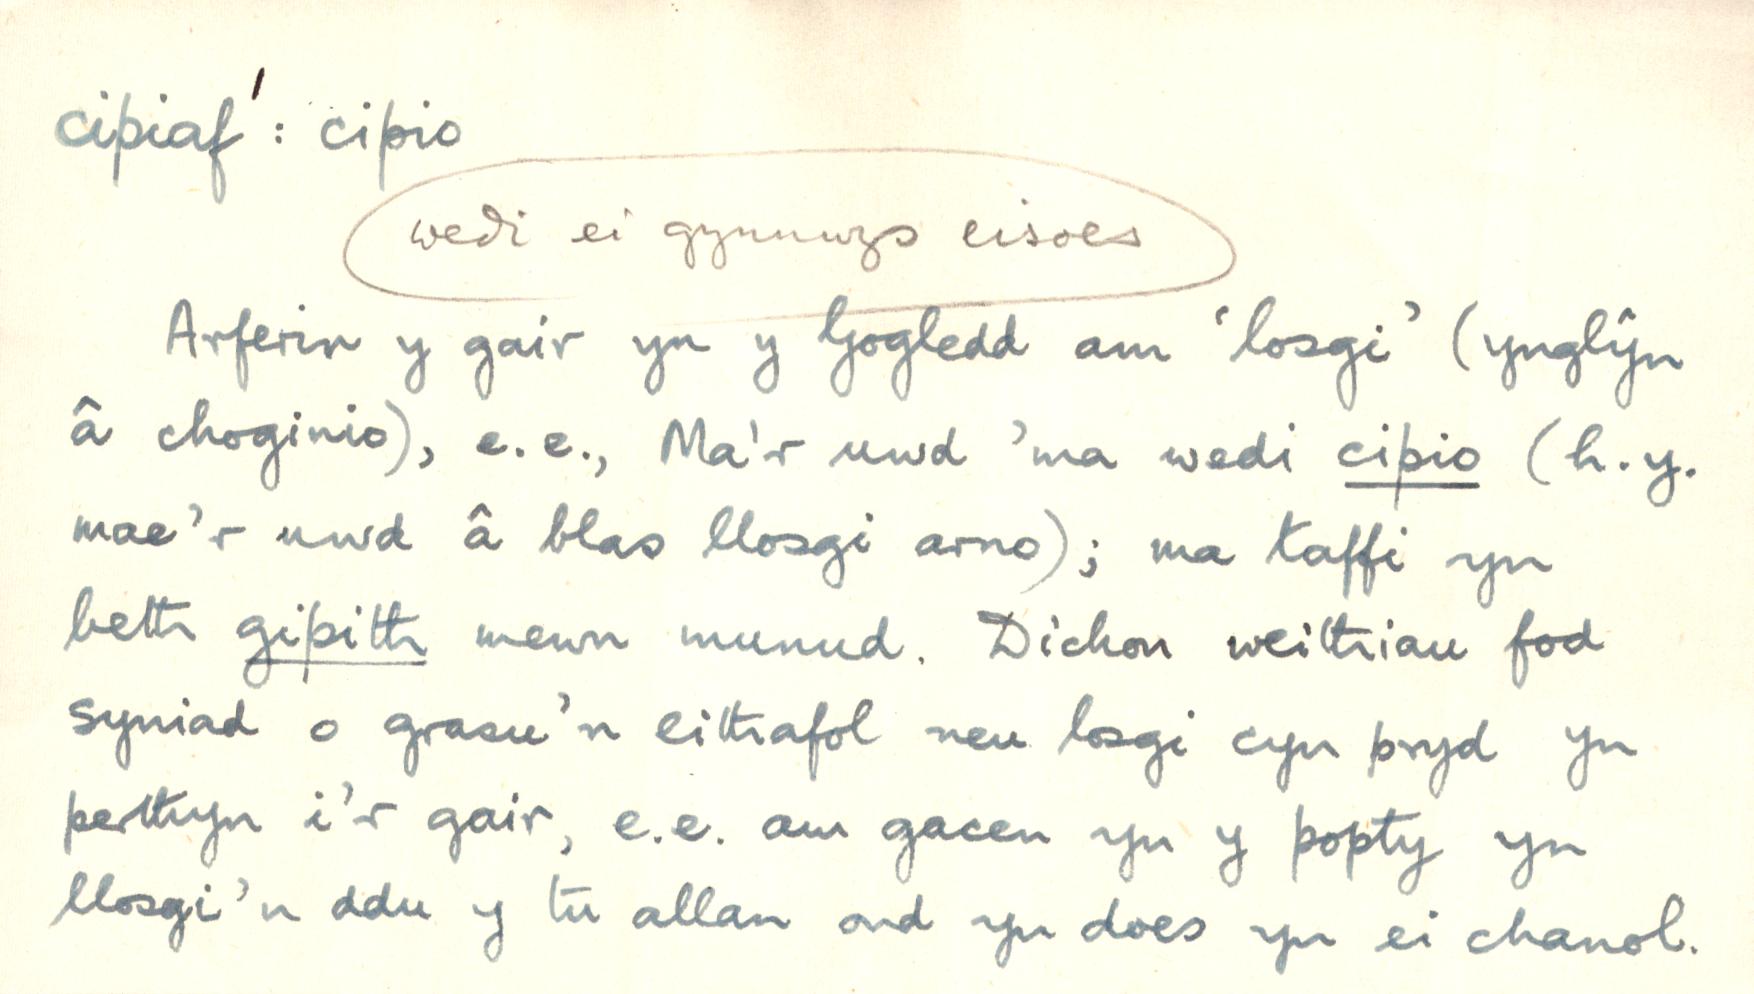 cipiaf': cipio
wedi ei gynnwys eisoes
Arferir y gair yn y Gogledd am 'losgi' (ynglŷn
â choginio), e.e., Ma'r uwd 'ma wedi cipio (h.y.
mae'r uwd â blas llosgi arno); ma taffi yn
beth gipith mewn munud. Dichon weithiau fod
syniad o grasu'n eithafol neu losgi cyn pryd yn
perthyn i'r gair, e.e. am gacen yn y popty yn
llosgi'n ddu y tu allan ond yn does yn ei chanol.